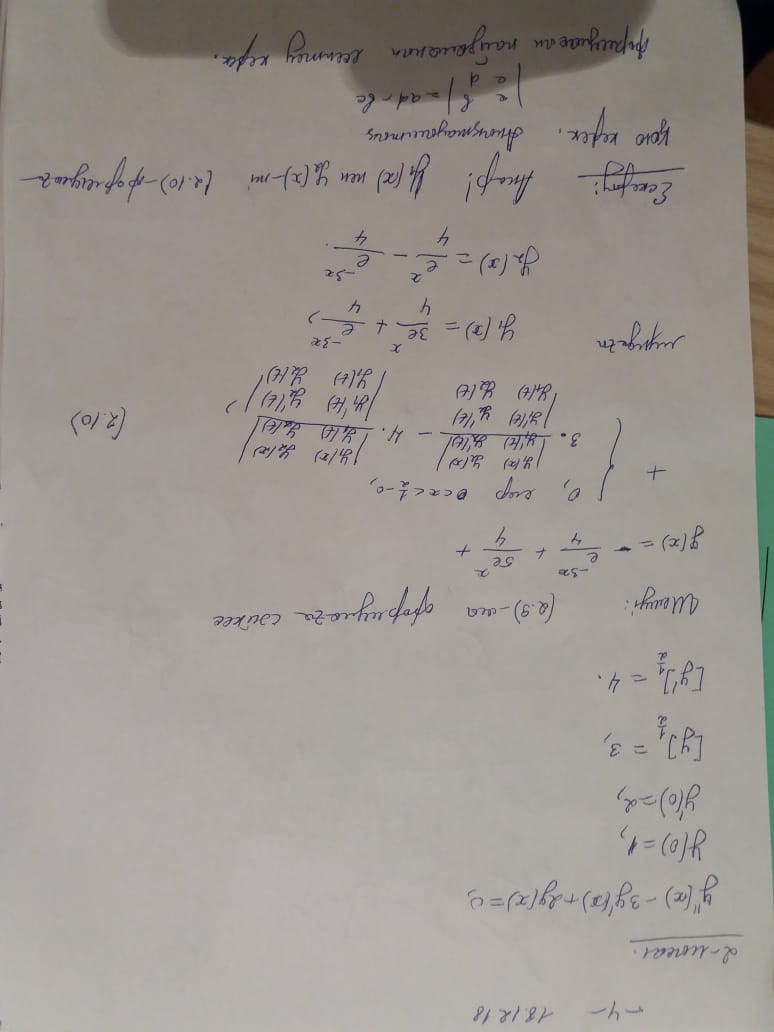 -4- 18.12.18
2-мысал.
y''(x) - 3y'(x) + 2y(x) = 0,
y(0) = 1,
y'(0) = 2,
[y]_{1/2} = 3,
[y']_{1/2} = 4.
Шешуі: (2.9)-шы формулаға сәйкес
y(x) = - e^{-3x}/4 + 5e^{x}/4 +
+ { 0, егер 0<x<1/2-0,
3 · |y₁(x) y₂(x); y₁'(t) y₂'(t)| / |y₁'(t) y₂'(t); y₁(t) y₂(t)| - 4 · |y₁(x) y₂(x); y₁(t) y₂(t)| / |y₁'(t) y₂'(t); y₁(t) y₂(t)|, (2.10)
мұндағы y₁(x) = 3e^{x}/4 + e^{-3x}/4,
y₂(x) = e^{x}/4 - e^{-3x}/4.
Ескерту: Анар! y₁(x) пен y₂(x)-ті (2.10)-формулаға
қою керек. Анықтауыштың
|a b; c d| = ad - bc
формуласын пайдаланып есептеу керек.